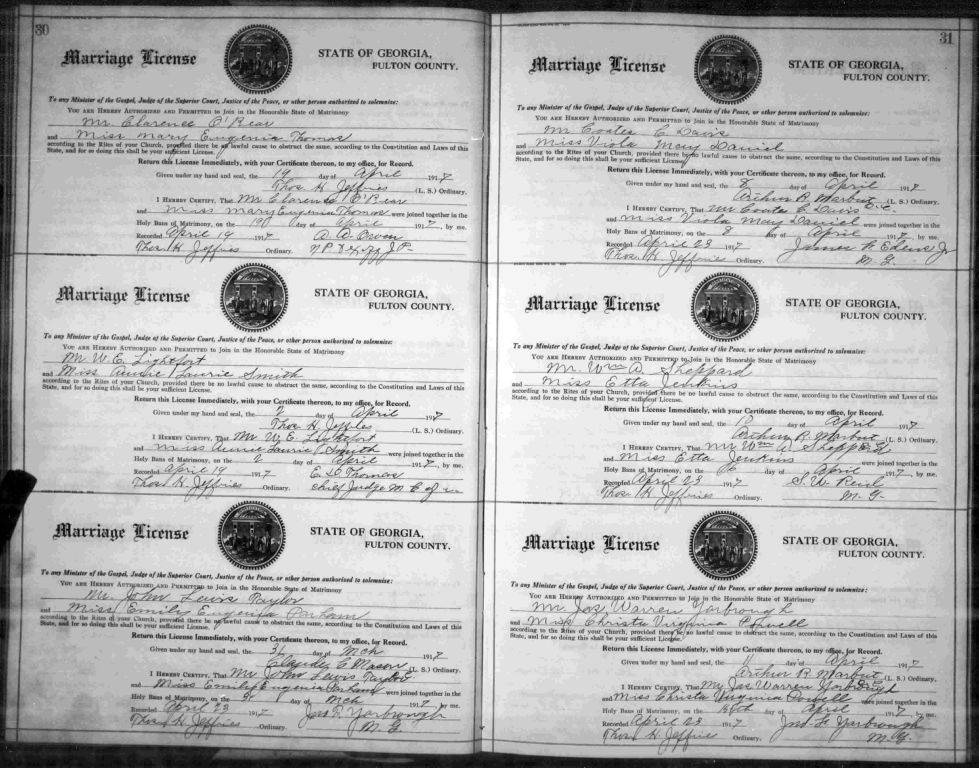 30
Marriage License
STATE OF GEORGIA,
FULTON COUNTY.
To any Minister of the Gospel, Judge of the Superior Court, Justice of the Peace, or other person authorized to solemnize:
YOU ARE HEREBY AUTHORIZED AND PERMITTED to Join in the Honorable State of Matrimony
Mr Clarence O'Rear
and Miss Mary Eugenia Thomas
according to the Rites of your Church, provided there be no lawful cause to obstruct the same, according to the Constitution and Laws of this
State, and for so doing this shall be your sufficient License.
Return this License Immediately, with your Certificate thereon, to my office, for Record.
Given under my hand and seal, the 19 day of April 1917
Thos. H. Jeffries (L. S.) Ordinary.
I HEREBY CERTIFY, That Mr Clarence O'Rear
and Miss Mary Eugenia Thomas were joined together in the
Holy Bans of Matrimony, on the 19 day of April 1917, by me.
Recorded April 19 1917 A. A. Owen
Thos. H. Jeffries Ordinary. J.P.
Marriage License
STATE OF GEORGIA,
FULTON COUNTY.
To any Minister of the Gospel, Judge of the Superior Court, Justice of the Peace, or other person authorized to solemnize:
YOU ARE HEREBY AUTHORIZED AND PERMITTED to Join in the Honorable State of Matrimony
Mr W. E. Lightfort
and Miss Annie Laurie Smith
according to the Rites of your Church, provided there be no lawful cause to obstruct the same, according to the Constitution and Laws of this
State, and for so doing this shall be your sufficient License.
Return this License Immediately, with your Certificate thereon, to my office, for Record.
Given under my hand and seal, the 2 day of April 1917
Thos. H. Jeffries (L. S.) Ordinary.
I HEREBY CERTIFY, That Mr W. E. Lightfort
and Miss Annie Laurie Smith were joined together in the
Holy Bans of Matrimony, on the 2 day of April 1917, by me.
Recorded April 19 1917 E. D. Thomas
Thos. H. Jeffries Ordinary. Chief Judge M. C. of
Marriage License
STATE OF GEORGIA,
FULTON COUNTY.
To any Minister of the Gospel, Judge of the Superior Court, Justice of the Peace, or other person authorized to solemnize:
YOU ARE HEREBY AUTHORIZED AND PERMITTED to Join in the Honorable State of Matrimony
Mr. John Lewis Taylor
and Miss Emily Eugenia Parham
according to the Rites of your Church, provided there be no lawful cause to obstruct the same, according to the Constitution and Laws of this
State, and for so doing this shall be your sufficient License.
Return this License Immediately, with your Certificate thereon, to my office, for Record.
Given under my hand and seal, the 31 day of Mch 1917
Claude C Mason (L. S.) Ordinary.
I HEREBY CERTIFY, That Mr John Lewis Taylor
and Miss Emily Eugenia Parham were joined together in the
Holy Bans of Matrimony, on the 31 day of Mch 1917, by me.
Recorded April 23 1917 Yarbrough
Thos. H. Jeffries Ordinary. M. G.
31
Marriage License
STATE OF GEORGIA,
FULTON COUNTY.
To any Minister of the Gospel, Judge of the Superior Court, Justice of the Peace, or other person authorized to solemnize:
YOU ARE HEREBY AUTHORIZED AND PERMITTED to Join in the Honorable State of Matrimony
Mr Coates C Davis
and Miss Viola May Daniel
according to the Rites of your Church, provided there be no lawful cause to obstruct the same, according to the Constitution and Laws of this
State, and for so doing this shall be your sufficient License.
Return this License Immediately, with your Certificate thereon, to my office, for Record.
Given under my hand and seal, the 8 day of April 1917
Arthur R. Marbut (L. S.) Ordinary.
I HEREBY CERTIFY, That Mr Coates C Davis
and Miss Viola May Daniel were joined together in the
Holy Bans of Matrimony, on the 8 day of April 1917, by me.
Recorded April 23 1917 James F. Edens Jr
Thos. H. Jeffries Ordinary. M. G.
Marriage License
STATE OF GEORGIA,
FULTON COUNTY.
To any Minister of the Gospel, Judge of the Superior Court, Justice of the Peace, or other person authorized to solemnize:
YOU ARE HEREBY AUTHORIZED AND PERMITTED to Join in the Honorable State of Matrimony
Mr. Wm A. Sheppard
and Miss Etta Jenkins
according to the Rites of your Church, provided there be no lawful cause to obstruct the same, according to the Constitution and Laws of this
State, and for so doing this shall be your sufficient License.
Return this License Immediately, with your Certificate thereon, to my office, for Record.
Given under my hand and seal, the day of April 1917
Arthur R. Marbut (L. S.) Ordinary.
I HEREBY CERTIFY, That Mr Wm A. Sheppard
and Miss Etta Jenkins were joined together in the
Holy Bans of Matrimony, on the day of April 1917, by me.
Recorded April 23 1917 S. W. Reid
Thos. H. Jeffries Ordinary. M. G.
Marriage License
STATE OF GEORGIA,
FULTON COUNTY.
To any Minister of the Gospel, Judge of the Superior Court, Justice of the Peace, or other person authorized to solemnize:
YOU ARE HEREBY AUTHORIZED AND PERMITTED to Join in the Honorable State of Matrimony
Mr. Jas Warren Yarbrough
and Miss Christa Virginia Powell
according to the Rites of your Church, provided there be no lawful cause to obstruct the same, according to the Constitution and Laws of this
State, and for so doing this shall be your sufficient License.
Return this License Immediately, with your Certificate thereon, to my office, for Record.
Given under my hand and seal, the 11 day of April 1917
Arthur R. Marbut (L. S.) Ordinary.
I HEREBY CERTIFY, That Mr Jas Warren Yarbrough
and Miss Christa Virginia Powell were joined together in the
Holy Bans of Matrimony, on the day of April 1917, by me.
Recorded April 23 1917 Jno F. Yarbrough
Thos. H. Jeffries Ordinary. M. G.